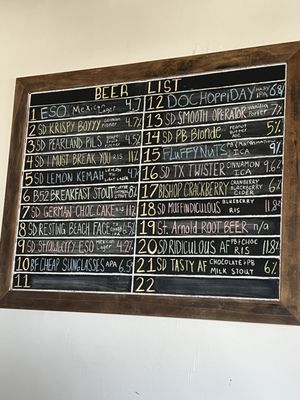 BEER LIST
1 ESO Mexican Lager 4.7
2 SD KRISPY BOYYY German Pilsner 4.7%
3 SD PEARLAND PILS 4.5%
4 SD I MUST BREAK YOU RIS 11%
5 SD LEMON KEMAH 4.7%
6 B52 BREAKFAST STOUT
7 SD GERMAN CHOC CAKE RIS
8 SD RESTING BEACH FACE
9 SD Strawberry ESO Mexican Lager 4.2%
10 BF CHEAP SUNGLASSES APA 6.5
11
12 DOC HOPPIDAY 6.8%
13 SD SMOOTH OPERATOR VANILLA PORTER 7%
14 SD PB Blonde PEANUT BUTTER 5%
15 FLUFFY NUTS ICA 9%
16 SD TX TWISTER CINNAMON ICA 9.6%
17 BISHOP CRACKBERRY CRANBERRY BLACKBERRY CIDER 6%
18 SD MUFFINDICULOUS BLUEBERRY RIS 11.8%
19 St. Arnold ROOT BEER n/a
20 SD RIDICULOUS AF PB & CHOC RIS 11.8%
21 SD TASTY AF CHOCOLATE & PB MILK STOUT 6%
22